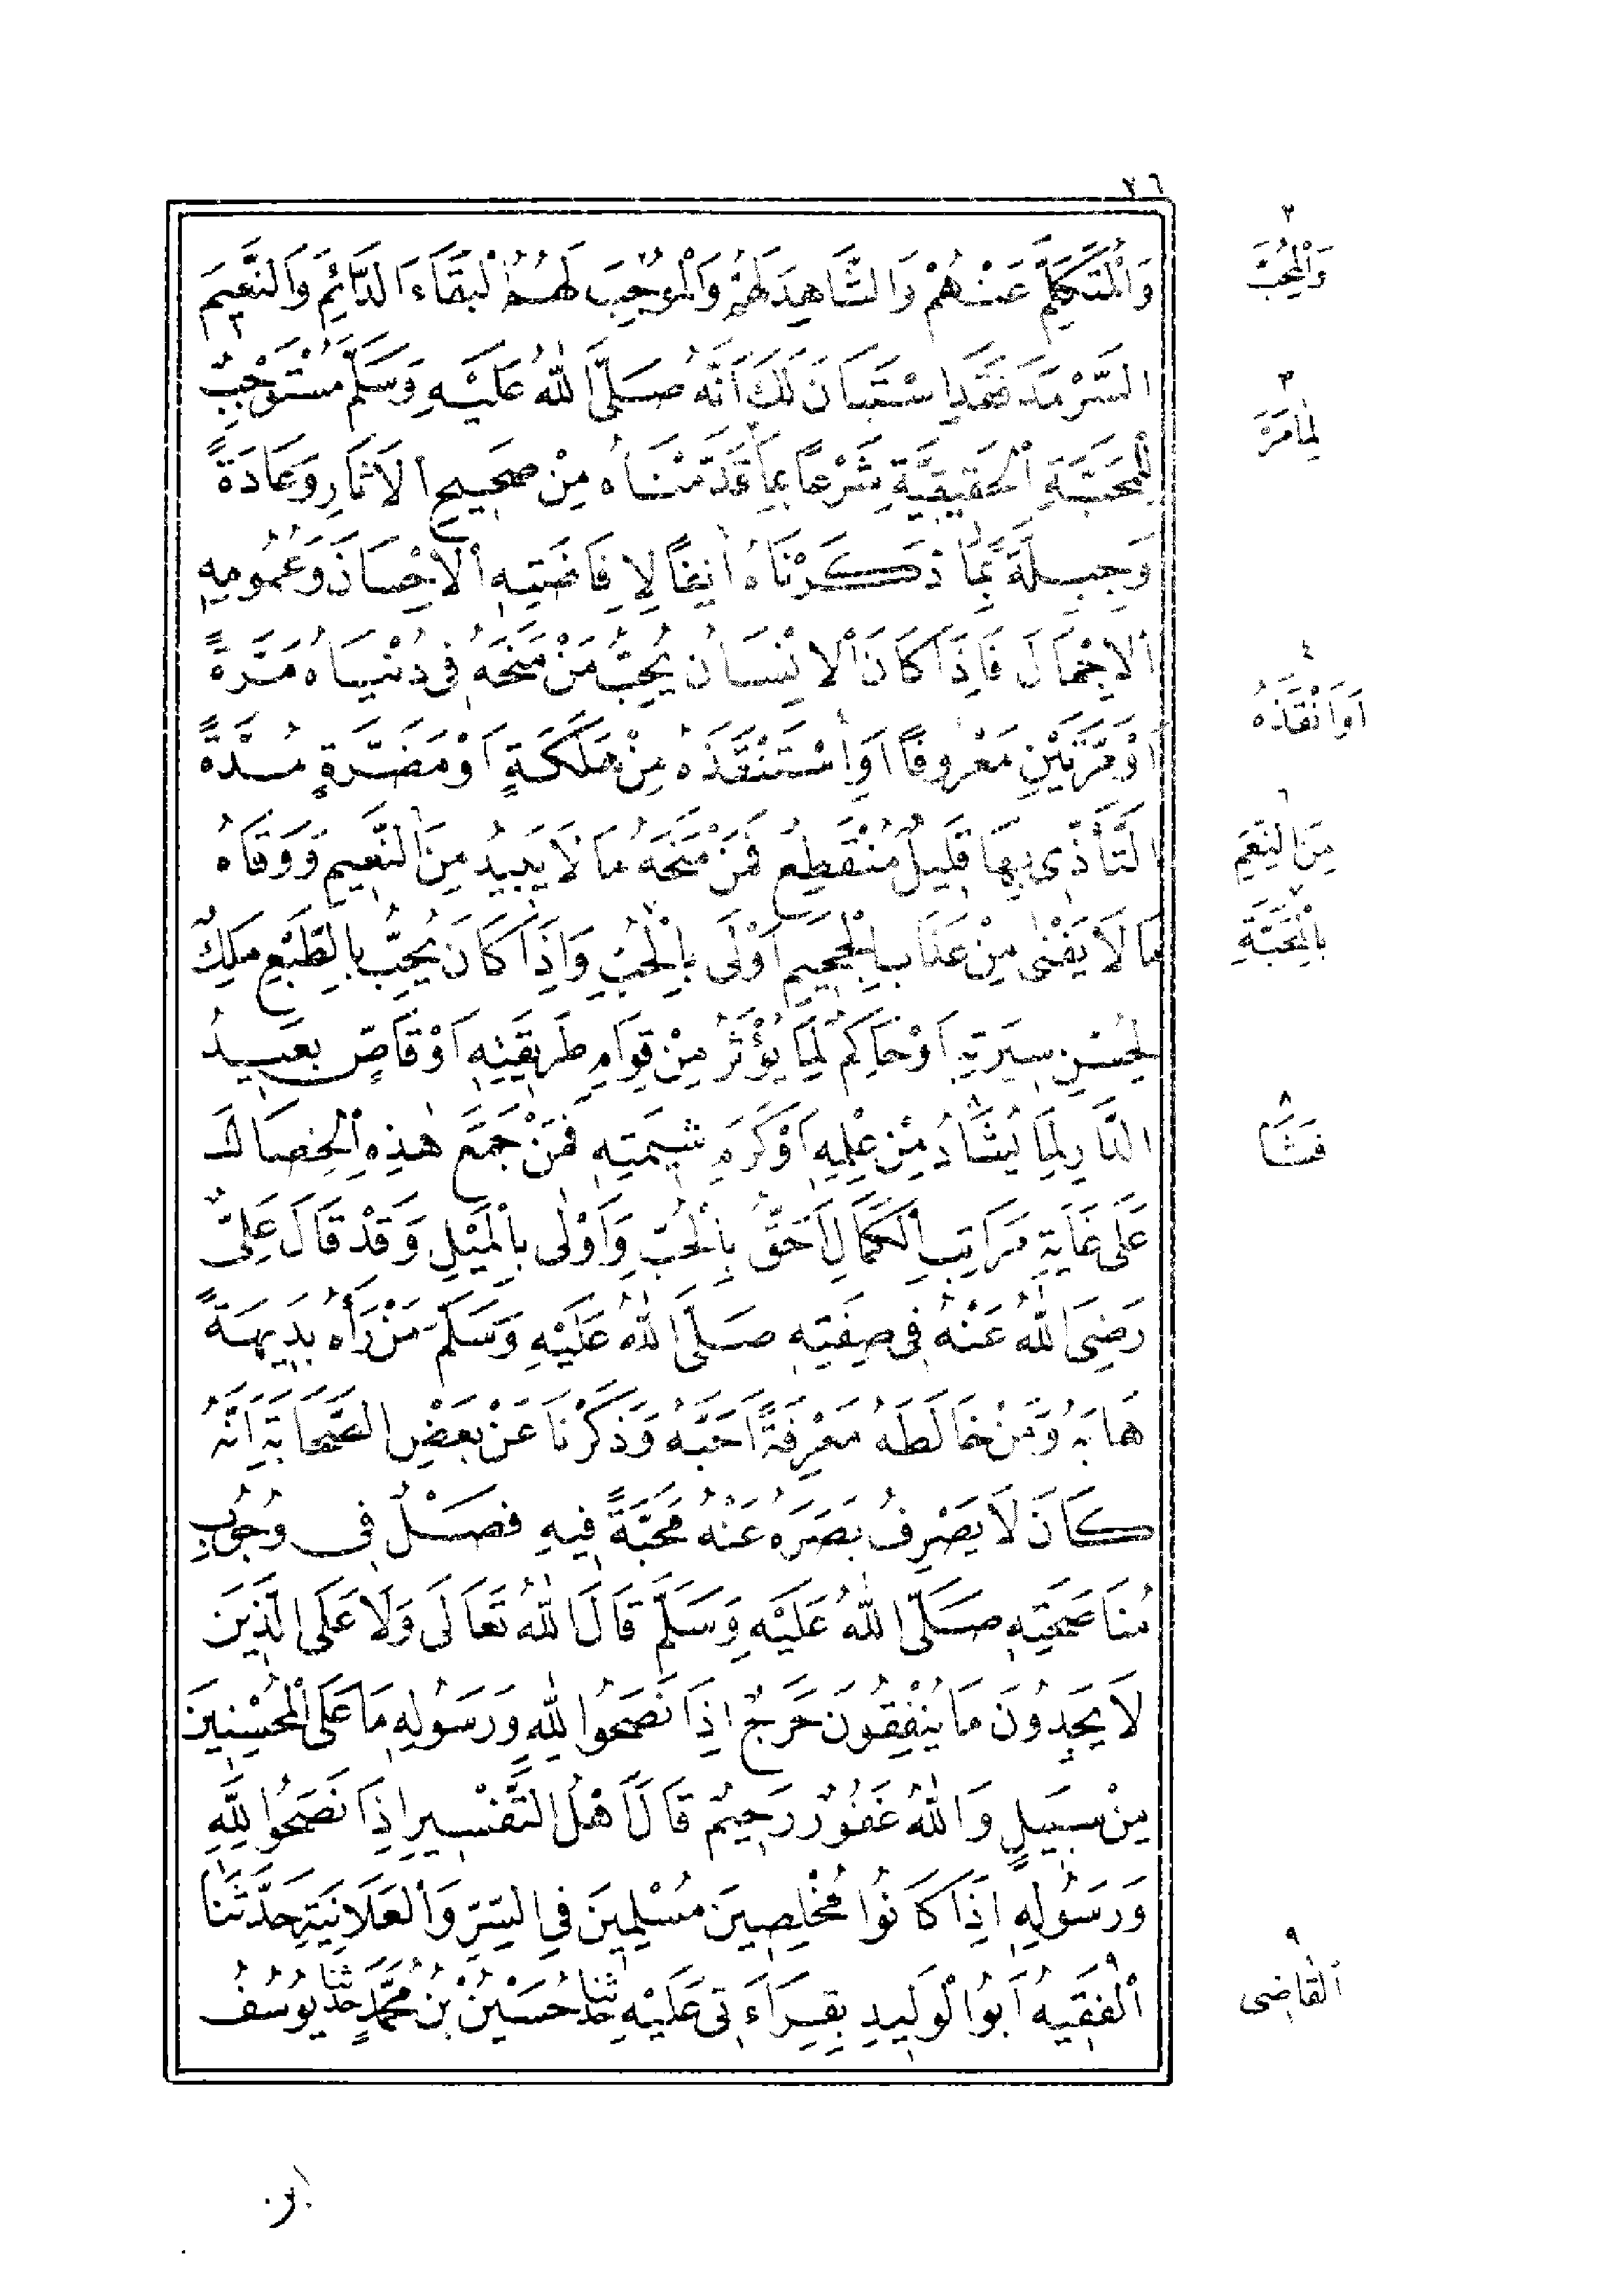 ٢٦
وَالْمُتَكَلِّمَ عَنْهُمْ وَالشَّاهِدَ لَهُمْ وَالْمُوجِبَ لَهُمُ الْبَقَاءَ الدَّائِمَ وَالنَّعِيمَ
السَّرْمَدَ فَقَدِ اسْتَبَانَ لَكَ أَنَّهُ صَلَّى اللهُ عَلَيْهِ وَسَلَّمَ مُسْتَوْجِبٌ
لِلْمَحَبَّةِ الْحَقِيقِيَّةِ شَرْعًا بِمَا قَدَّمْنَاهُ مِنْ صَحِيحِ الْاٰثَارِ وَعَادَةً
وَجِبِلَّةً بِمَا ذَكَرْنَاهُ اٰنِفًا لِاِفَاضَتِهِ الْاِحْسَانَ وَعُمُومِهِ
الْاِجْمَالَ فَاِذَا كَانَ الْاِنْسَانُ يُحِبُّ مَنْ مَنَحَهُ فِى دُنْيَاهُ مَرَّةً
اَوْ مَرَّتَيْنِ مَعْرُوفًا اَوِ اسْتَنْقَذَهُ مِنْ هَلَكَةٍ اَوْ مَضَرَّةٍ مُدَّةُ
التَّأَذِّى بِهَا قَلِيلٌ مُنْقَطِعٌ فَمَنْ مَنَحَهُ مَا لَا يَبِيدُ مِنَ النَّعِيمِ وَوَقَاهُ
مَا لَا يَفْنٰى مِنْ عَذَابِ الْجَحِيمِ اَوْلٰى بِالْحُبِّ وَاِذَا كَانَ يُحَبُّ بِالطَّبْعِ مَلِكٌ
لِحُسْنِ سِيرَتِهِ اَوْ حَاكِمٌ لِمَا يُؤْثَرُ مِنْ قِوَامِ طَرِيقَتِهِ اَوْ قَاصٍّ بَعِيدُ
الدَّارِ لِمَا يُشَادُ مِنْ عِلْمِهِ اَوْ كَرَمِ شِيمَتِهِ فَمَنْ جَمَعَ هٰذِهِ الْخِصَالَ
عَلٰى غَايَةِ مَرَاتِبِ الْكَمَالِ اَحَقُّ بِالْحُبِّ وَاَوْلٰى بِالْمَيْلِ وَقَدْ قَالَ عَلِىٌّ
رَضِىَ اللهُ عَنْهُ فِى صِفَتِهِ صَلَّى اللهُ عَلَيْهِ وَسَلَّمَ مَنْ رَاٰهُ بَدِيهَةً
هَابَهُ وَمَنْ خَالَطَهُ مَعْرِفَةً اَحَبَّهُ وَذَكَرْنَا عَنْ بَعْضِ الصَّحَابَةِ اَنَّهُ
كَانَ لَا يَصْرِفُ بَصَرَهُ عَنْهُ مَحَبَّةً فِيهِ فَصْلٌ فِى وُجُوبِ
مُنَاصَحَتِهِ صَلَّى اللهُ عَلَيْهِ وَسَلَّمَ قَالَ اللهُ تَعَالٰى وَلَا عَلَى الَّذِينَ
لَا يَجِدُونَ مَا يُنْفِقُونَ حَرَجٌ اِذَا نَصَحُوا لِلّٰهِ وَرَسُولِهِ مَا عَلَى الْمُحْسِنِينَ
مِنْ سَبِيلٍ وَاللهُ غَفُورٌ رَحِيمٌ قَالَ اَهْلُ التَّفْسِيرِ اِذَا نَصَحُوا لِلّٰهِ
وَرَسُولِهِ اِذَا كَانُوا مُخْلِصِينَ مُسْلِمِينَ فِى السِّرِّ وَالْعَلَانِيَةِ حَدَّثَنَا
الْفَقِيهُ اَبُو الْوَلِيدِ بِقِرَاءَتِى عَلَيْهِ حَدَّثَنَا حُسَيْنُ بْنُ مُحَمَّدٍ حَدَّثَنَا يُوسُفُ
٢
وَالْمُحِبَّ
٣
لِمَا مَرَّ
٤
اَوْ اَنْقَذَهُ
٦
مِنَ النِّعَمِ
٧
بِالْمَحَبَّةِ
٨
فَشَا
٩
اَلْقَاضِى
ابن